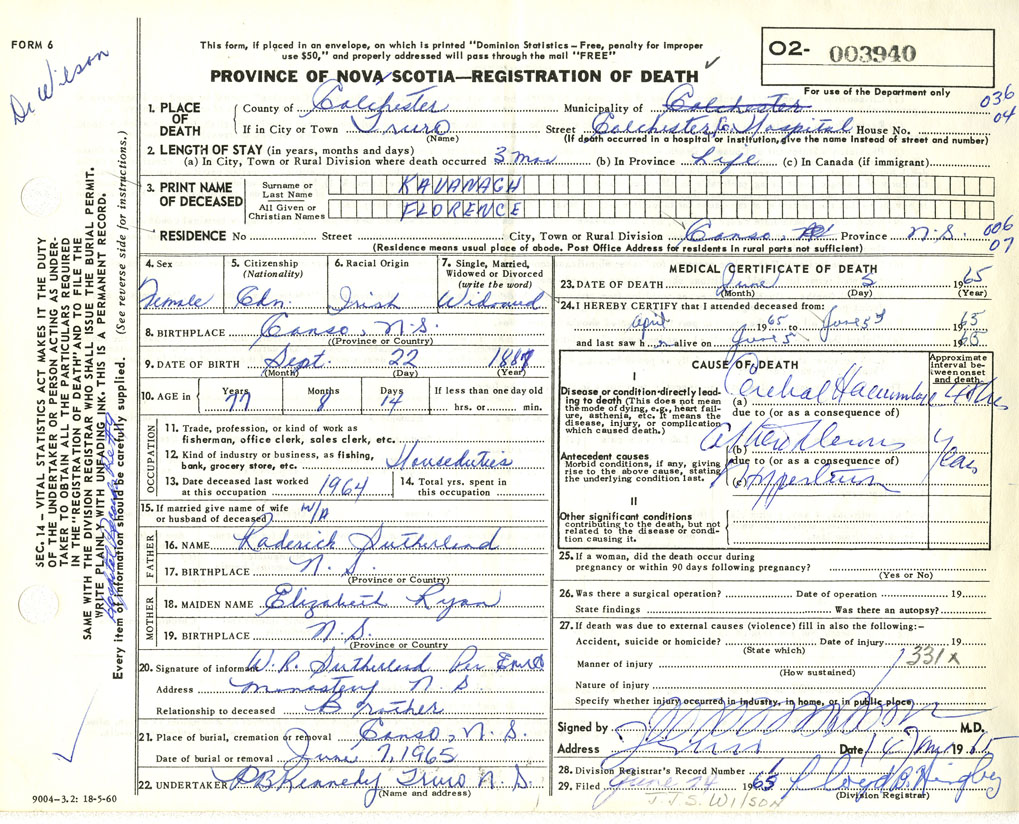 FORM 6
Dr Wilson
This form, if placed in an envelope, on which is printed "Dominion Statistics – Free, penalty for improper
use $50," and properly addressed will pass through the mail "FREE"
O2- 003940
For use of the Department only
PROVINCE OF NOVA SCOTIA—REGISTRATION OF DEATH
036
04
1. PLACE OF DEATH
County of Colchester Municipality of Colchester
If in City or Town Truro Street Colchester Co Hospital House No.
(Name) (If death occurred in a hospital or institution, give the name instead of street and number)
2. LENGTH OF STAY (in years, months and days)
(a) In City, Town or Rural Division where death occurred 3 mos (b) In Province Life (c) In Canada (if immigrant)
3. PRINT NAME OF DECEASED
Surname or Last Name KAVANAGH
All Given or Christian Names FLORENCE
006
07
RESIDENCE No Street City, Town or Rural Division Canso, Province N.S.
(Residence means usual place of abode. Post Office Address for residents in rural parts not sufficient)
4. Sex Female
5. Citizenship (Nationality) Cdn.
6. Racial Origin Irish
7. Single, Married, Widowed or Divorced (write the word) Widowed
8. BIRTHPLACE Canso, N.S.
(Province or Country)
9. DATE OF BIRTH Sept. 22 1887
(Month) (Day) (Year)
10. AGE in Years 77 Months 8 Days 14 If less than one day old hrs. or min.
OCCUPATION
11. Trade, profession, or kind of work as
fisherman, office clerk, sales clerk, etc.
12. Kind of industry or business, as fishing,
bank, grocery store, etc. Houseduties
13. Date deceased last worked
at this occupation 1964
14. Total yrs. spent in
this occupation
15. If married give name of wife
or husband of deceased N/A
FATHER
16. NAME Roderick Sutherland
17. BIRTHPLACE N.S.
(Province or Country)
MOTHER
18. MAIDEN NAME Elizabeth Ryan
19. BIRTHPLACE N.S.
(Province or Country
20. Signature of informant W. R. Sutherland Per
Address Monastery N.S.
Relationship to deceased Brother
21. Place of burial, cremation or removal Canso, N.S.
Date of burial or removal June 7, 1965
22. UNDERTAKER P B Kennedy Truro N.S.
(Name and address)
MEDICAL CERTIFICATE OF DEATH
23. DATE OF DEATH June 5 1965
(Month) (Day) (Year)
24. I HEREBY CERTIFY that I attended deceased from:
April 1965 to June 5 1965
and last saw h alive on June 5 1965
CAUSE OF DEATH
Approximate interval between onset and death
I
Disease or condition directly leading to death (This does not mean the mode of dying, e.g., heart failure, asthenia, etc. It means the disease, injury, or complication which caused death.)
(a) Cerebral
due to (or as a consequence of)
Antecedent causes
Morbid conditions, if any, giving rise to the above cause, stating the underlying condition last.
(b)
due to (or as a consequence of)
(c)
Years
II
Other significant conditions
contributing to the death, but not related to the disease or condition causing it.
25. If a woman, did the death occur during
pregnancy or within 90 days following pregnancy?
(Yes or No)
26. Was there a surgical operation? Date of operation 19
State findings Was there an autopsy?
27. If death was due to external causes (violence) fill in also the following:–
Accident, suicide or homicide? Date of injury 19
(State which)
331x
Manner of injury
(How sustained)
Nature of injury
Specify whether injury occurred in industry, in home, or in public place
Signed by M.D.
Address Truro Date 14 1965
28. Division Registrar's Record Number
29. Filed June 14 1965
(Division Registrar)
J.J.S. WILSON
SEC. 14 – VITAL STATISTICS ACT MAKES IT THE DUTY
OF THE UNDERTAKER OR PERSON ACTING AS UNDERTAKER
TO OBTAIN ALL THE PARTICULARS REQUIRED
IN THE "REGISTRATION OF DEATH" AND TO FILE THE
SAME WITH THE DIVISION REGISTRAR WHO SHALL ISSUE THE BURIAL PERMIT.
WRITE PLAINLY WITH UNFADING INK. THIS IS A PERMANENT RECORD.
Every item of information should be carefully supplied. (See reverse side for instructions.)
9004–3.2: 18-5-60